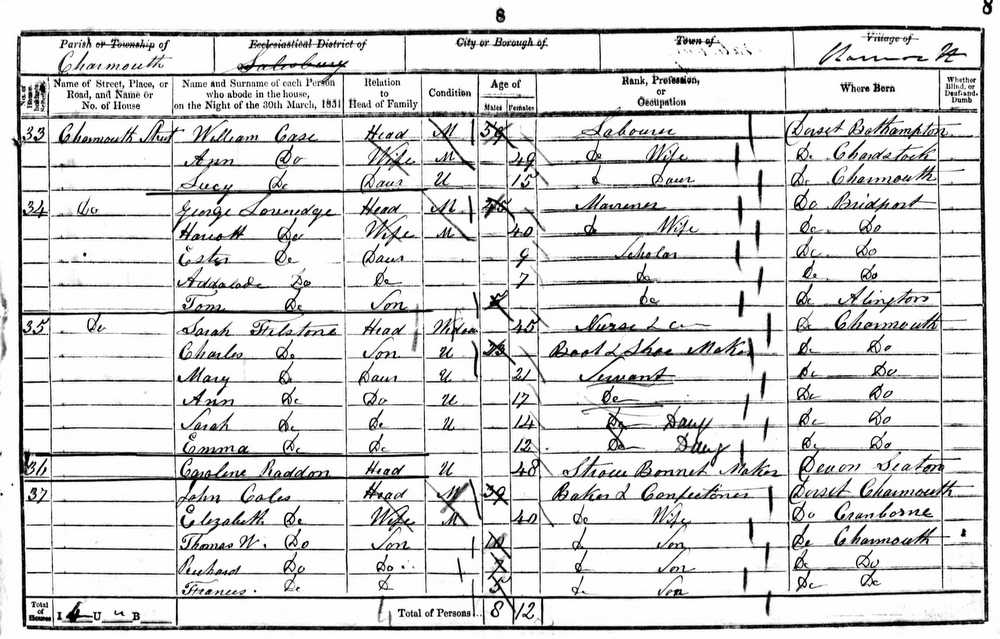 8
8
Parish or Township of
Charmouth
Ecclesiastical District of
Salisbury
City or Borough of
Town of
Village of
Name of Street, Place, or Road, and Name or No. of House
Name and Surname of each Person who abode in the house, on the Night of the 30th March, 1851
Relation to Head of Family
Condition
Age of
Males Females
Rank, Profession, or Occupation
Where Born
Whether Blind, or Deaf-and-Dumb
33 Charmouth Street William Case Head M 59 Labourer Dorset Bothampton
Ann Do Wife M 49 Do Wife Do Chardstock
Lucy Do Daur U 15 Do Daur Do Charmouth
34 Do George Loveredge Head M 45 Marriner Do Bridport
Hariott Do Wife M 40 Do Wife Do Do
Ester Do Daur 9 Scholar Do Do
Addalade Do Do 7 Do Do Do
Tom Do Son 5 Do Do Alington
35 Do Sarah Filstone Head Widow 45 Nurse &c Do Charmouth
Charles Do Son U 23 Boot & Shoe Maker Do Do
Mary Do Daur U 21 Servant Do Do
Ann Do Do U 17 Do Do Do
Sarah Do Do U 14 Do Daur Do Do
Emma Do Do 12 Do Daur Do Do
36 Caroline Raddon Head U 48 Straw Bonnet Maker Devon Seaton
37 John Coles Head M 39 Baker & Confectioner Dorset Charmouth
Elizabeth Do Wife M 40 Do Wife Do Cranborne
Thomas W. Do Son 10 Do Son Do Charmouth
Richard Do Do 7 Do Son Do Do
Francis Do Do 5 Do Son Do Do
Total of Houses I 4 U B Total of Persons 8 12